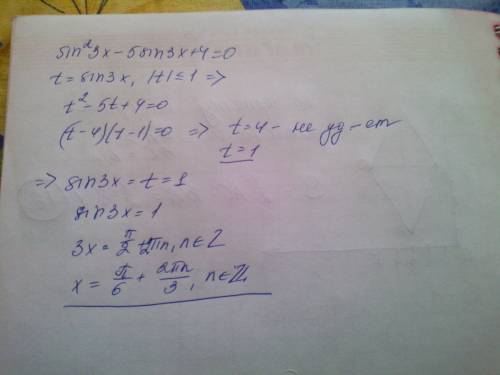 sin²3x - 5sin3x + 4 = 0
t = sin3x, |t| ≤ 1 =>
t² - 5t + 4 = 0
(t - 4)(t - 1) = 0 => t = 4 - не уд-ет
t = 1
=> sin3x = t = 1
sin3x = 1
3x = π/2 + 2πn, n∈Z
x = π/6 + 2πn/3, n∈Z